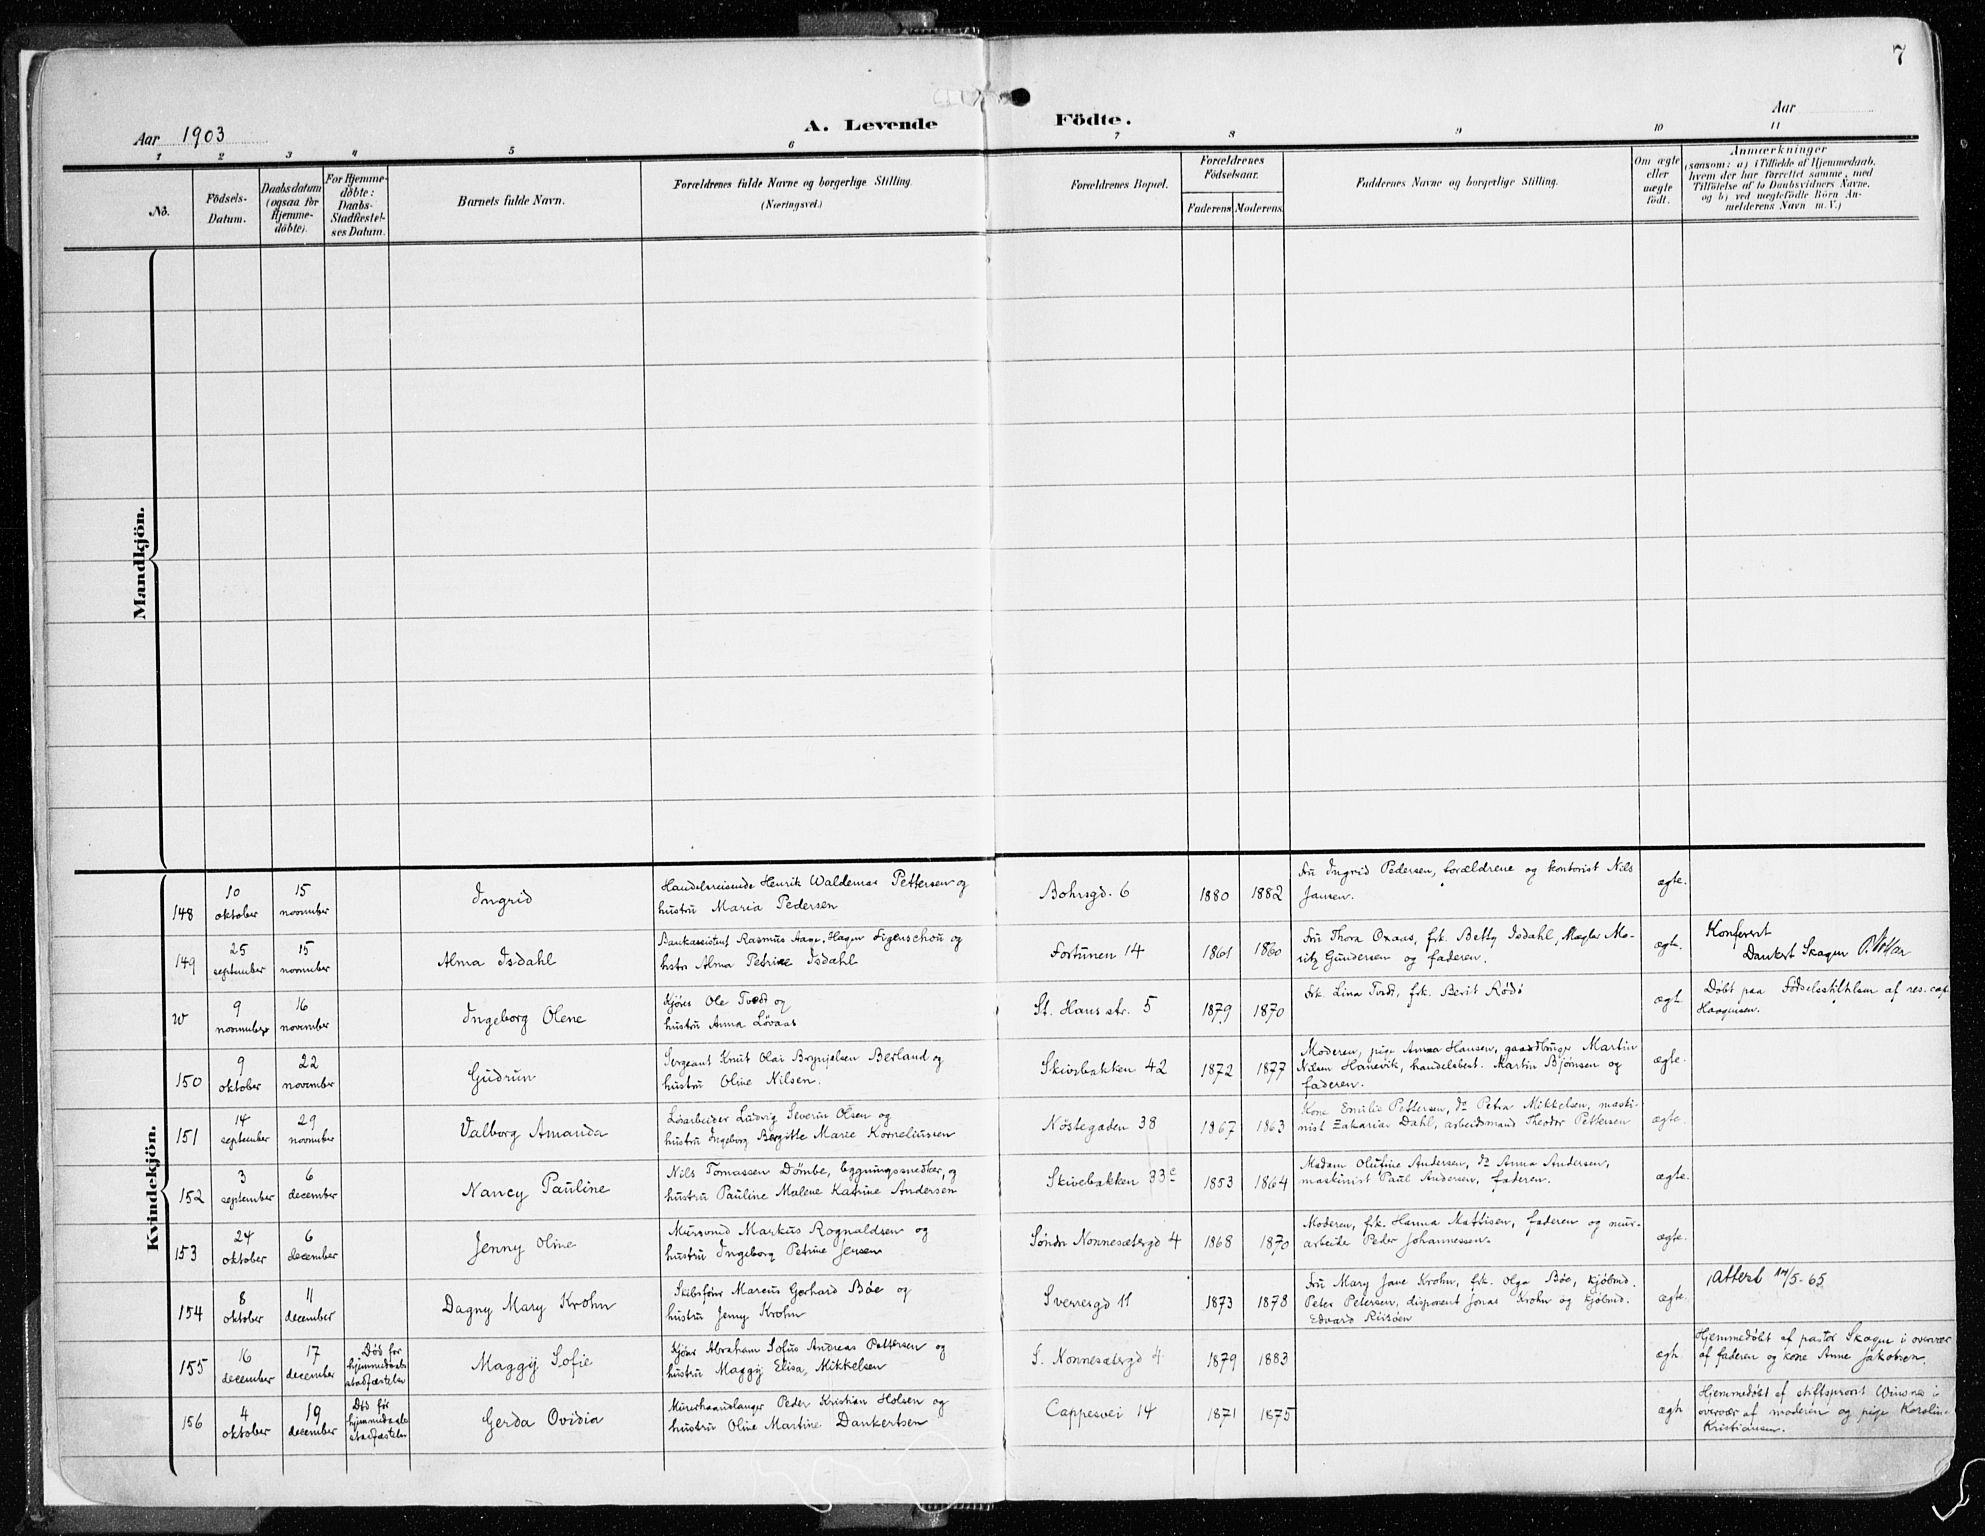 7
Aar 1903
A. Levende Födte.
Aar
1 2 3 4 5 6 7 8 9 10 11
No.
Födsels-Datum.
Daabsdatum (ogsaa for Hjemme-döbte).
For Hjemme-döbte: Daabs-Stadfæstel-ses Datum.
Barnets fulde Navn.
Forældrenes fulde Navne og borgerlige Stilling.
(Næringsvei.)
Forældrenes Bopæl.
Forældrenes Födselsaar.
Faderens. Moderens.
Faddernes Navne og borgerlige Stilling.
Om ægte eller uægte født.
Anmærkninger
(saasom: a) i Tilfælde af Hjemmedaab, hvem der har forrettet samme, med Tilföielse af to Daabsvidners Navne, og b) ved uægtefødte Börn An-melderens Navn m. V.)
Mandkjön.
Kvindekjön.
148 10 oktober 15 november Ingrid Handelsreisende Henrik Waldemar Pettersen og hustru Maria Pedersen Bohrsgd. 6 1880 1882 Fru Ingrid Pedersen, forældrene og kontorist Nils Jansen. ægte.
149 25 september 15 november Alma Isdahl Bankassistent Rasmus Aage Hagen Figenschou og hstr Alma Petrine Isdahl Fortunen 14 1861 1860 Fru Thora Oxaas, frk. Betty Isdahl, Mægler Mo-ritz Gundersen og faderen. ægte. Konferert Dankert Skagen
9 november 16 november Ingeborg Olene Kjører Ole Tvedt og hustru Anna Løvaas St. Hans str. 5 1879 1870 Frk. Lina Tvedt, frk. Berit Rødø ægt. Døbt paa Fødselsstiftelsen af res. cap. Haagensen.
150 9 oktober 22 november Gudrun Sergeant Knut Olai Brynjelsen Berland og hustru Oline Nilsen. Skivebakken 42 1872 1877 Moderen, pige Anna Hansen, gaardbruger Martin Nilsen Hanevik, handelsbet. Martin Bjørnsen og faderen. ægte.
151 14 september 29 november Valborg Amanda Løsarbeider Ludvig Severin Olsen og hustru Ingeborg Bergitte Marie Korneliussen Nøstegaden 38 1867 1863 Kone Emilie Pettersen, do Petra Mikkelsen, maski-nist Zakarias Dahl, arbeidsmand Theodor Pettersen ægte.
152 3 september 6 december Nancy Pauline Nils Tomassen Dømbe, bygningssnedker, og hustru Pauline Malene Katrine Andersen Skivebakken 33c 1853 1864 Madam Olufine Andersen, do Anna Andersen, maskinist Paul Andersen, faderen. ægte.
153 24 oktober 6 december Jenny Oline Mursvend Markus Rognaldsen og hustru Ingeborg Petrine Jensen Søndr Nonnesætergd 4 1868 1870 Moderen, frk. Hanna Mattisen, faderen og mur-arbeider Peder Johannessen. ægte.
154 8 oktober 11 december Dagny Mary Krohn Skibsfører Marcus Gerhard Bøe og hustru Jenny Krohn Sverresgd 11 1873 1878 Fru Mary Jane Krohn, frk. Olga Bøe, kjøbmd. Peter Petersen, disponent Jonas Krohn og kjøbmd. Edvard Riisøen ægte. Attest 14/5-65
155 16 december 17 december Død før hjemmedaabs stadfæstelse Maggy Sofie Kjører Abraham Sofus Andreas Pettersen og hustru Maggy Elisa Mikkelsen S. Nonnesætergd 4 1879 1883 ægte Hjemmedøbt af pastor Skagen i overvær af faderen og kone Anne Jakobsen.
156 4 oktober 19 december Død før hjemmedaabs stadfæstelse Gerda Ovidia Murerhaandlanger Peder Kristian Holsen og hustru Oline Martine Dankertsen Cappesvei 14 1871 1875 ægte Hjemmedøbt af stiftsprovst Winsnes i overvær af moderen og pige Karoline Kristiansen.